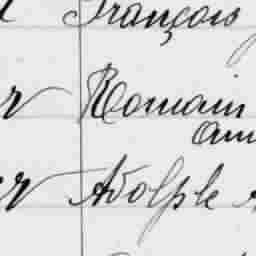 François
r Romain
Am
er Adolphe